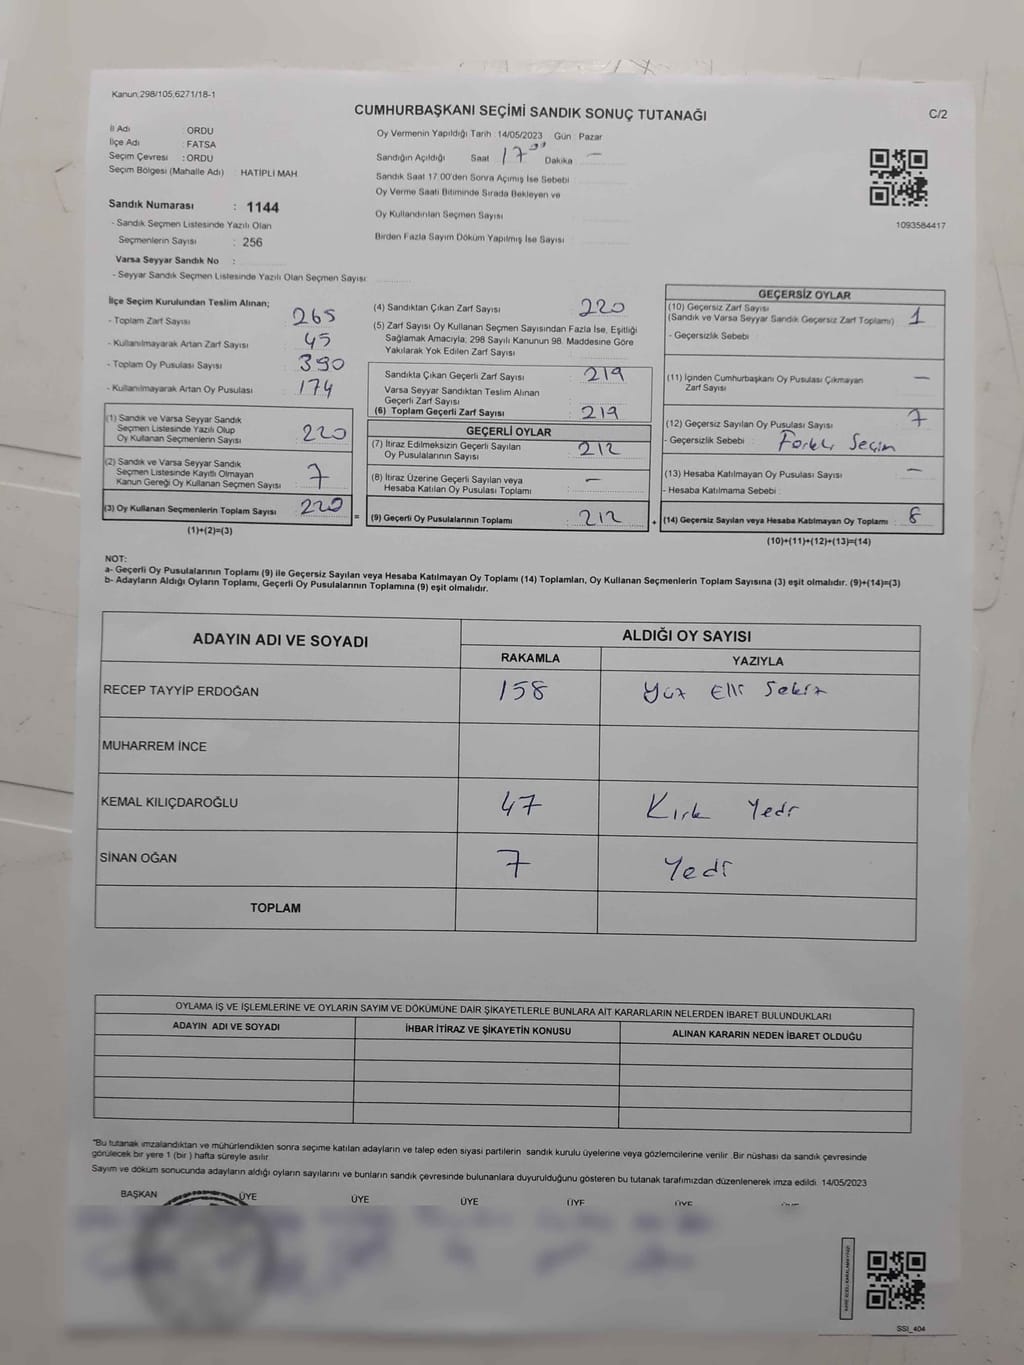 Kanun;298/105,6271/18-1
CUMHURBAŞKANI SEÇİMİ SANDIK SONUÇ TUTANAĞI
C/2
İl Adı : ORDU
İlçe Adı : FATSA
Seçim Çevresi : ORDU
Seçim Bölgesi (Mahalle Adı) : HATİPLİ MAH
Sandık Numarası : 1144
- Sandık Seçmen Listesinde Yazılı Olan
Seçmenlerin Sayısı : 256
Varsa Seyyar Sandık No :
- Seyyar Sandık Seçmen Listesinde Yazılı Olan Seçmen Sayısı:
Oy Vermenin Yapıldığı Tarih 14/05/2023 Gün Pazar
Sandığın Açıldığı Saat 17 00 Dakika —
Sandık Saat 17:00'den Sonra Açımış İse Sebebi
Oy Verme Saati Bitiminde Sırada Bekleyen ve
Oy Kullandırılan Seçmen Sayısı
Birden Fazla Sayım Döküm Yapılmış İse Sayısı
1093584417
İlçe Seçim Kurulundan Teslim Alınan;
- Toplam Zarf Sayısı : 265
- Kullanılmayarak Artan Zarf Sayısı : 45
- Toplam Oy Pusulası Sayısı : 390
- Kullanılmayarak Artan Oy Pusulası : 174
(1) Sandık ve Varsa Seyyar Sandık
Seçmen Listesinde Yazılı Olup
Oy Kullanan Seçmenlerin Sayısı : 220
(2) Sandık ve Varsa Seyyar Sandık
Seçmen Listesinde Kayıtlı Olmayan
Kanun Gereği Oy Kullanan Seçmen Sayısı : 7
(3) Oy Kullanan Seçmenlerin Toplam Sayısı : 220
(1)+(2)=(3)
(4) Sandıktan Çıkan Zarf Sayısı : 220
(5) Zarf Sayısı Oy Kullanan Seçmen Sayısından Fazla İse, Eşitliği
Sağlamak Amacıyla; 298 Sayılı Kanunun 98. Maddesine Göre
Yakılarak Yok Edilen Zarf Sayısı
Sandıkta Çıkan Geçerli Zarf Sayısı : 219
Varsa Seyyar Sandıktan Teslim Alınan
Geçerli Zarf Sayısı
(6) Toplam Geçerli Zarf Sayısı : 219
GEÇERLİ OYLAR
(7) İtiraz Edilmeksizin Geçerli Sayılan
Oy Pusulalarının Sayısı : 212
(8) İtiraz Üzerine Geçerli Sayılan veya
Hesaba Katılan Oy Pusulası Toplamı : —
= (9) Geçerli Oy Pusulalarının Toplamı : 212
GEÇERSİZ OYLAR
(10) Geçersiz Zarf Sayısı
(Sandık ve Varsa Seyyar Sandık Geçersiz Zarf Toplamı) : 1
- Geçersizlik Sebebi :
(11) İçinden Cumhurbaşkanı Oy Pusulası Çıkmayan
Zarf Sayısı —
(12) Geçersiz Sayılan Oy Pusulası Sayısı : 7
- Geçersizlik Sebebi : Farklı Seçim
(13) Hesaba Katılmayan Oy Pusulası Sayısı : —
- Hesaba Katılmama Sebebi :
+ (14) Geçersiz Sayılan veya Hesaba Katılmayan Oy Toplamı : 8
(10)+(11)+(12)+(13)=(14)
NOT:
a- Geçerli Oy Pusulalarının Toplamı (9) ile Geçersiz Sayılan veya Hesaba Katılmayan Oy Toplamı (14) Toplamları, Oy Kullanan Seçmenlerin Toplam Sayısına (3) eşit olmalıdır. (9)+(14)=(3)
b- Adayların Aldığı Oyların Toplamı, Geçerli Oy Pusulalarının Toplamına (9) eşit olmalıdır.
ADAYIN ADI VE SOYADI ALDIĞI OY SAYISI
RAKAMLA YAZIYLA
RECEP TAYYİP ERDOĞAN 158 Yüz Elli Sekiz
MUHARREM İNCE
KEMAL KILIÇDAROĞLU 47 Kırk Yedi
SİNAN OĞAN 7 Yedi
TOPLAM
OYLAMA İŞ VE İŞLEMLERİNE VE OYLARIN SAYIM VE DÖKÜMÜNE DAİR ŞİKAYETLERLE BUNLARA AİT KARARLARIN NELERDEN İBARET BULUNDUKLARI
ADAYIN ADI VE SOYADI İHBAR İTİRAZ VE ŞİKAYETİN KONUSU ALINAN KARARIN NEDEN İBARET OLDUĞU
*Bu tutanak imzalandıktan ve mühürlendikten sonra seçime katılan adayların ve talep eden siyasi partilerin sandık kurulu üyelerine veya gözlemcilerine verilir. Bir nüshası da sandık çevresinde
görülecek bir yere 1 (bir ) hafta süreyle asılır.
Sayım ve döküm sonucunda adayların aldığı oyların sayılarını ve bunların sandık çevresinde bulunanlara duyurulduğunu gösteren bu tutanak tarafımızdan düzenlenerek imza edildi. 14/05/2023
BAŞKAN ÜYE ÜYE ÜYE ÜYE ÜYE
SSI_404